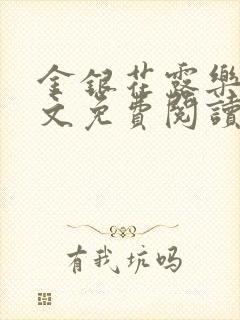 金銀花露樂
文免費閱讀
有我坑吗